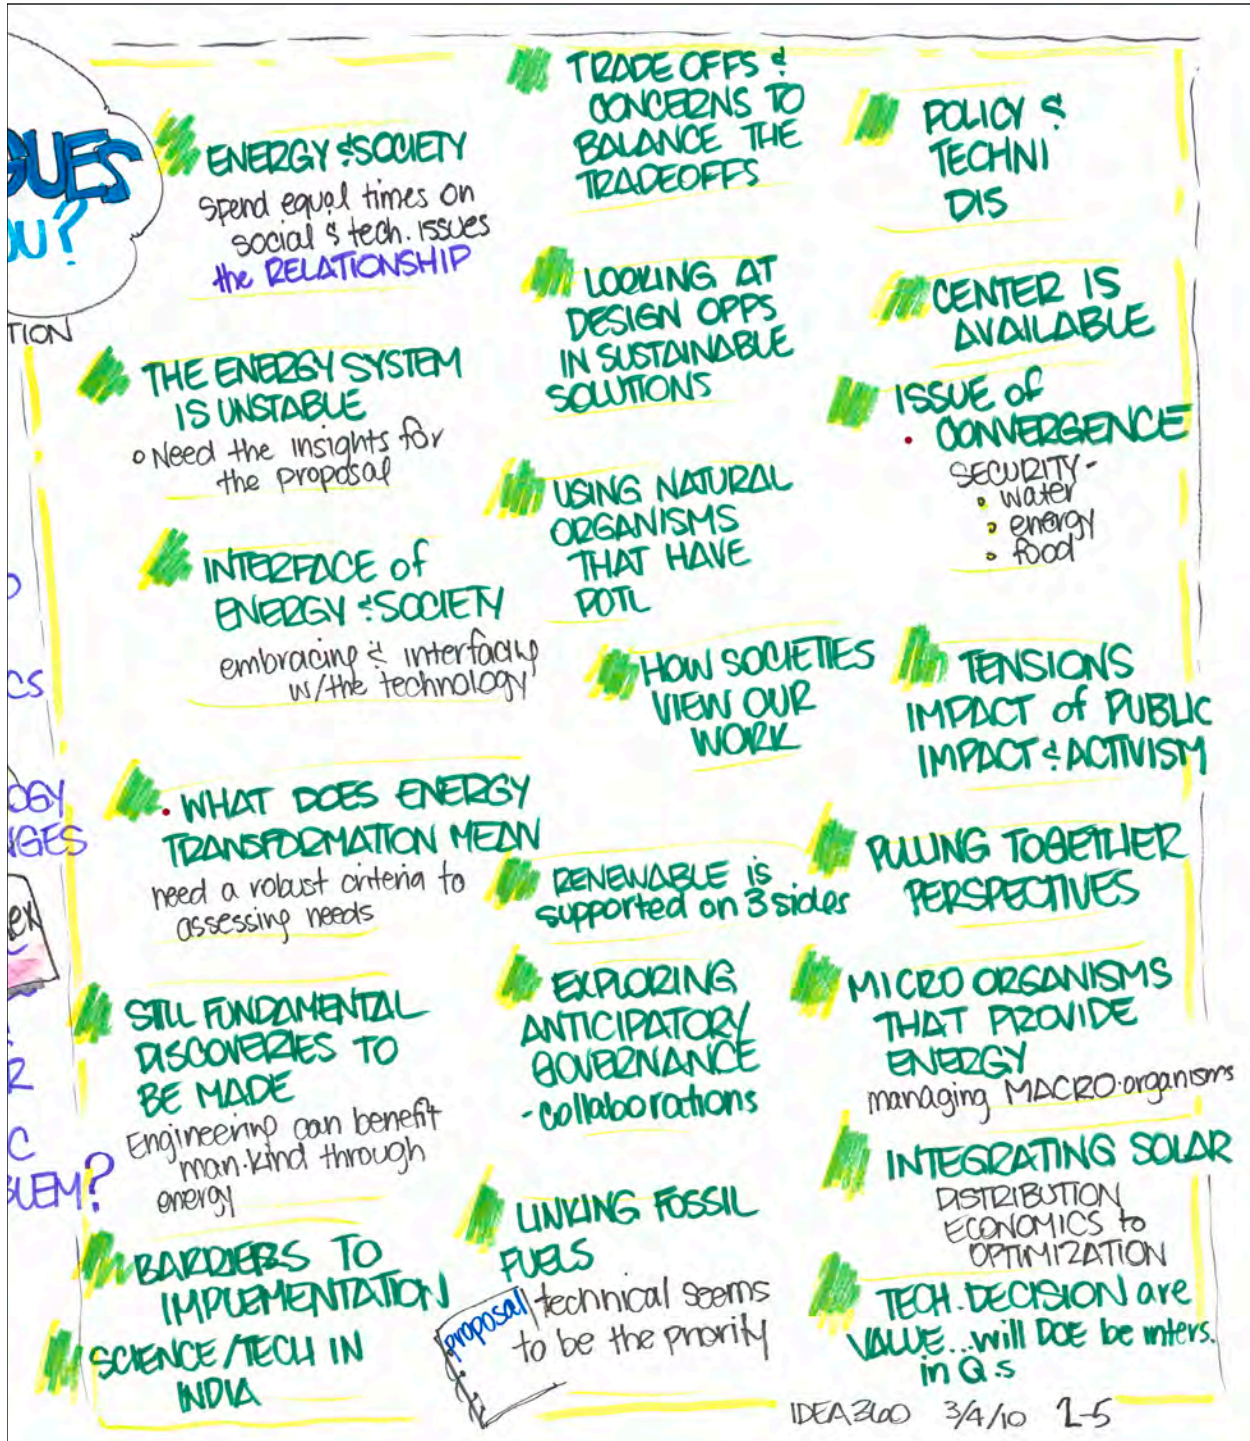 GUES
OU?
TION
CS
OGY
NGES
ex
R
C
BLEM?
ENERGY & SOCIETY
spend equal times on
social & tech. issues
the RELATIONSHIP
THE ENERGY SYSTEM
IS UNSTABLE
Need the insights for
the proposal
INTERFACE of
ENERGY & SOCIETY
embracing & interfacing
w/the technology
. WHAT DOES ENERGY
TRANSFORMATION MEAN
need a robust criteria to
assessing needs
STILL FUNDAMENTAL
DISCOVERIES TO
BE MADE
Engineering can benefit
man.kind through
energy
BARRIERS TO
IMPLEMENTATION
SCIENCE/TECH IN
INDIA
TRADE OFFS &
CONCERNS TO
BALANCE THE
TRADEOFFS
LOOKING AT
DESIGN OPPS
IN SUSTAINABLE
SOLUTIONS
USING NATURAL
ORGANISMS
THAT HAVE
POTL
HOW SOCIETIES
VIEW OUR
WORK
RENEWABLE is
supported on 3 sides
EXPLORING
ANTICIPATORY
GOVERNANCE
- collaborations
LINKING FOSSIL
FUELS
proposal technical seems
to be the priority
POLICY &
TECHNI
DIS
CENTER IS
AVAILABLE
ISSUE of
. CONVERGENCE
SECURITY -
water
energy
food
TENSIONS
IMPACT of PUBLIC
IMPACT & ACTIVISM
PULLING TOGETHER
PERSPECTIVES
MICRO ORGANISMS
THAT PROVIDE
ENERGY
managing MACRO.organisms
INTEGRATING SOLAR
DISTRIBUTION
ECONOMICS to
OPTIMIZATION
TECH. DECISION are
VALUE...will DOE be inters.
in Q.s
IDEA360 3/4/10 2-5